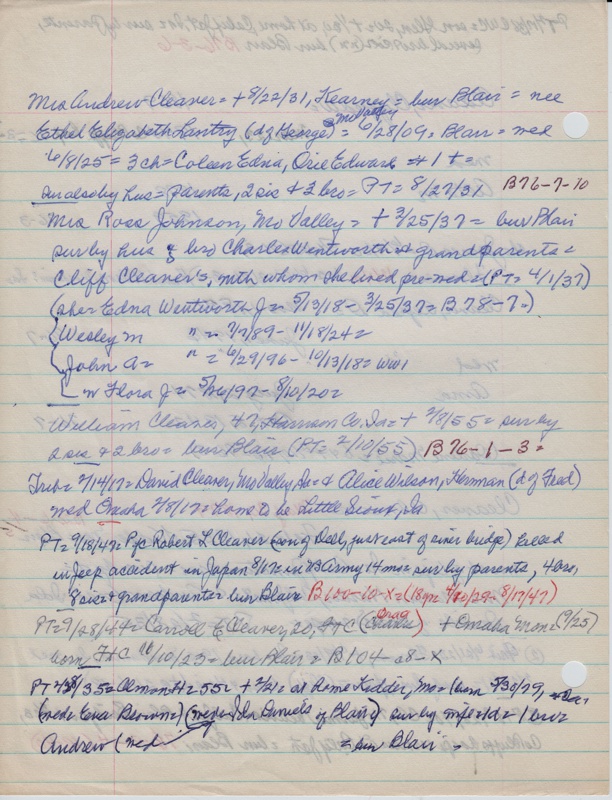 Mrs Andrew Cleaver = + 8/22/31, Kearney = bur Blair = nee
Mo Valley
Ethel Elizabeth Lantry (d of George) = 6/28/09 = Blair = wed
6/8/25 = 3 ch = Coleen Edna, Orie Edward + 1 + =
sur also by hus = parents, 2 sis + 3 bro = PT = 8/27/31 B76-7-10
Mrs Ross Johnson, Mo Valley = + 3/25/37 = bur Blair
sur by hus & bro Charles Wentworth + grandparents =
Cliff Cleaver's, with whom she lived pre-wed = (PT = 4/1/37)
(she = Edna Wentworth J = 5/13/18 - 3/25/37 = B 78-7 = )
Wesley M " = 7/7/89 - 11/18/24 =
John A = " = 6/29/96 - 10/13/18 = WW1
w Flora J = 5/26/97 - 8/10/20 =
William Cleaver, 47, Harrison Co, Ia = + 2/7/55 = sur by
2 sis + 2 bro = bur Blair (PT = 2/10/55) B76-1-3 =
Trib = 2/14/17 = David Cleaver, Mo Valley, Ia = + Alice Wilson, Herman (d of Fred)
wed Omaha 2/8/17 = home to be Little Sioux, Ia
PT = 9/18/47 = Pfc Robert L Cleaver (son of Dell, just east of river bridge) killed
in jeep accident in Japan 8/17 = in US Army 14 mos = sur by parents, 4 bro,
8 sis + grandparents = bur Blair B100-10-X = (18 yr = 4/10/29 = 8/17/47)
PT = 9/28/44 = Carroll E Cleaver, 20, Ft C (Craig) + Omaha Mon = (9/25)
born Ft C 10/10/23 = bur Blair = B104-a8 = X
PT = 35 = Almon H = 55 = + 2/21 = at home Kidder, Mo = (born 5/30/79,
(wed = Eva Brown) Ida Daniels of Blair) sur by wife = 1d = 1 bro
Andrew (wed = bur Blair =